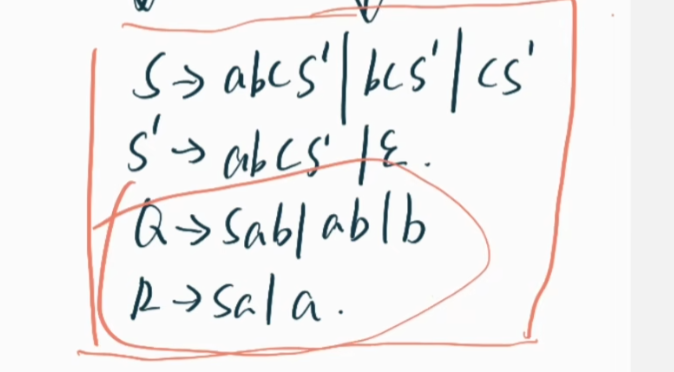 S → abcS' | bcS' | cS'
S' → abcS' | ε.
Q → Sab | ab | b
R → Sa | a.